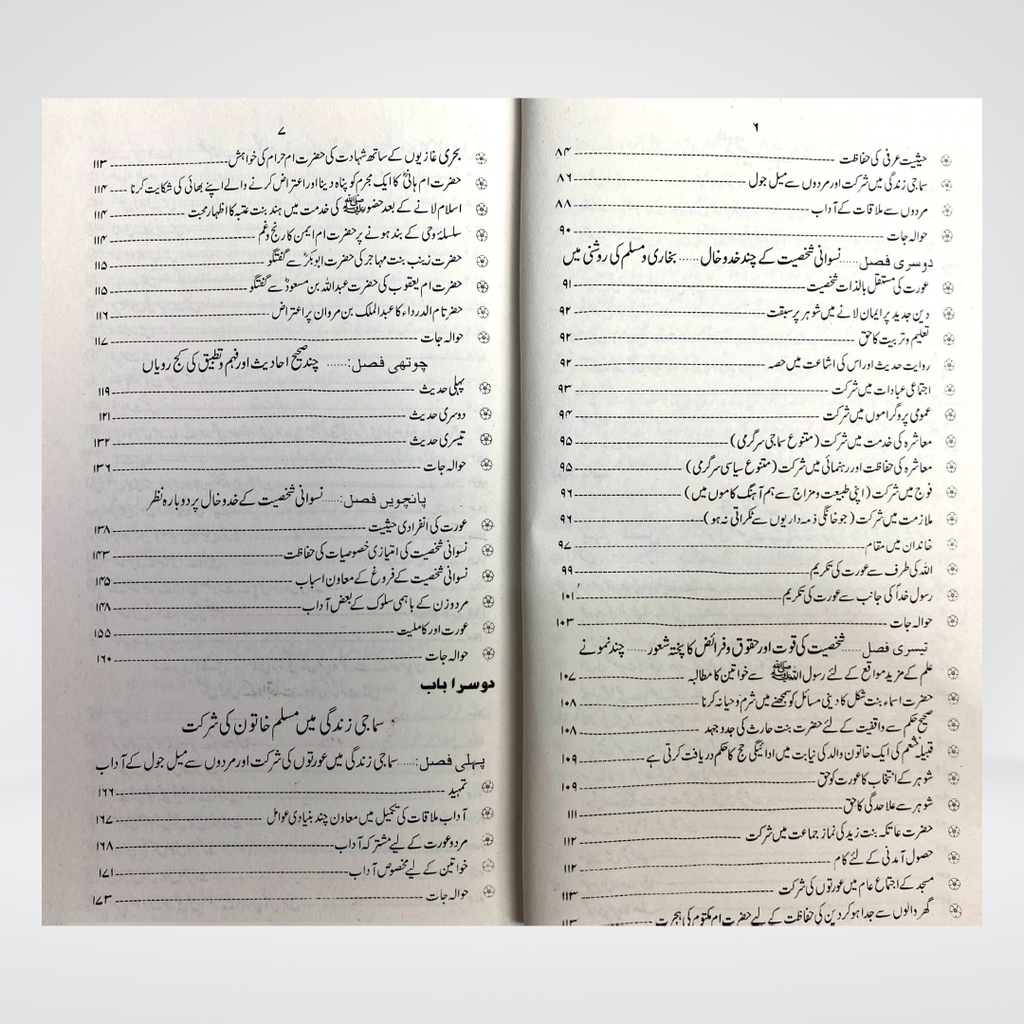 ۶
حیثیت عرفی کی حفاظت ۸۴
سماجی زندگی میں شرکت اور مردوں سے میل جول ۸۶
مردوں سے ملاقات کے آداب ۸۸
حوالہ جات ۹۰
دوسری فصل..... نسوانی شخصیت کے چند خدوخال..... بخاری و مسلم کی روشنی میں
عورت کی مستقل بالذات شخصیت ۹۱
دین جدید پر ایمان لانے میں شوہر پر سبقت ۹۲
تعلیم و تربیت کا حق ۹۲
روایت حدیث اور اس کی اشاعت میں حصہ ۹۲
اجتماعی عبادات میں شرکت ۹۳
عمومی پروگراموں میں شرکت ۹۴
معاشرہ کی خدمت میں شرکت (متنوع سماجی سرگرمی) ۹۵
معاشرہ کی حفاظت اور رہنمائی میں شرکت (متنوع سیاسی سرگرمی) ۹۵
فوج میں شرکت (اپنی طبیعت و مزاج سے ہم آہنگ کاموں میں) ۹۶
ملازمت میں شرکت (جو خانگی ذمہ داریوں سے ٹکراتی نہ ہو) ۹۶
خاندان میں مقام ۹۷
اللہ کی طرف سے عورت کی تکریم ۹۹
رسول خداؐ کی جانب سے عورت کی تکریم ۱۰۱
حوالہ جات ۱۰۳
تیسری فصل..... شخصیت کی قوت اور حقوق و فرائض کا پختہ شعور..... چند نمونے
علم کے مزید مواقع کے لئے رسول اللہ ﷺ سے خواتین کا مطالبہ ۱۰۷
حضرت اسماء بنت شکل کا دینی مسائل کو سمجھنے میں شرم و حیا نہ کرنا ۱۰۸
صحیح حکم سے واقفیت کے لئے حضرت بنت حارث کی جدوجہد ۱۰۸
قبیلہ خثعم کی ایک خاتون والد کی نیابت میں ادائیگی حج کا حکم دریافت کرتی ہے ۱۰۹
شوہر کے انتخاب کا عورت کو حق ۱۰۹
شوہر سے علاحدگی کا حق ۱۱۱
حضرت عاتکہ بنت زید کی نماز جماعت میں شرکت ۱۱۲
حصول آمدنی کے لئے کام ۱۱۲
مسجد کے اجتماع عام میں عورتوں کی شرکت ۱۱۳
گھر والوں سے جدا ہو کر دین کی حفاظت کے لیے حضرت ام مکتوم کی ہجرت ۱۱۳
۷
بحری غازیوں کے ساتھ شہادت کی حضرت ام حرام کی خواہش ۱۱۳
حضرت ام ہانیؓ کا ایک مجرم کو پناہ دینا اور اعتراض کرنے والے اپنے بھائی کی شکایت کرنا ۱۱۴
اسلام لانے کے بعد حضور ﷺ کی خدمت میں ہند بنت عتبہ کا اظہار محبت ۱۱۴
سلسلۂ وحی کے بند ہونے پر حضرت ام ایمن کا رنج و غم ۱۱۴
حضرت زینب بنت مہاجر کی حضرت ابوبکرؓ سے گفتگو ۱۱۵
حضرت ام یعقوب کی حضرت عبداللہ بن مسعودؓ سے گفتگو ۱۱۵
حضرت ام الدرداء کا عبدالملک بن مروان پر اعتراض ۱۱۶
حوالہ جات ۱۱۷
چوتھی فصل:...... چند صحیح احادیث اور فہم و تطبیق کی کج رویاں
پہلی حدیث ۱۱۹
دوسری حدیث ۱۲۱
تیسری حدیث ۱۳۲
حوالہ جات ۱۳۶
پانچویں فصل:..... نسوانی شخصیت کے خدوخال پر دوبارہ نظر
عورت کی انفرادی حیثیت ۱۳۸
نسوانی شخصیت کی امتیازی خصوصیات کی حفاظت ۱۴۳
نسوانی شخصیت کے فروغ کے معاون اسباب ۱۴۵
مرد و زن کے باہمی سلوک کے بعض آداب ۱۴۸
عورت اور کاملیت ۱۵۵
حوالہ جات ۱۶۰
دوسرا باب
سماجی زندگی میں مسلم خاتون کی شرکت
پہلی فصل:..... سماجی زندگی میں عورتوں کی شرکت اور مردوں سے میل جول کے آداب
تمہید ۱۶۶
آداب ملاقات کی تکمیل میں معاون چند بنیادی عوامل ۱۶۷
مرد و عورت کے لیے مشترکہ آداب ۱۶۸
خواتین کے لیے مخصوص آداب ۱۷۱
حوالہ جات ۱۷۳